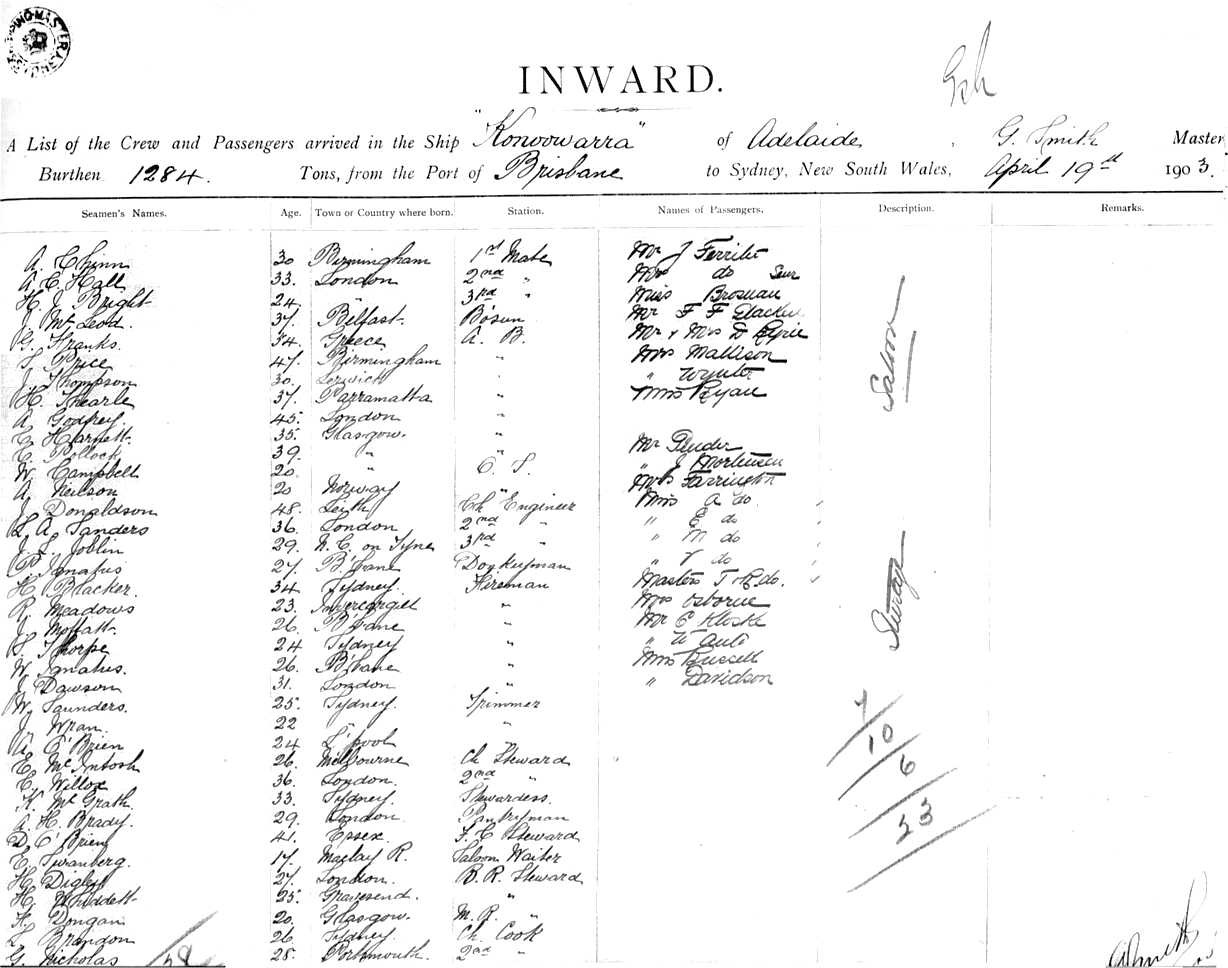 INWARD.
A List of the Crew and Passengers arrived in the Ship "Konoowarra" of Adelaide, G. Smith Master
Burthen 1284. Tons, from the Port of Brisbane to Sydney, New South Wales, April 19th 1903.
Seamen's Names. Age. Town or Country where born. Station. Names of Passengers. Description. Remarks.
A. Chinn 30 Birmingham 1st Mate Mr J Ferrito
A. E. Hall 33. London 2nd " Mrs do
H. J. Bright 24 " 3rd " Miss Brosnan
Mc Leod. 37 Belfast. Bo'sun Mr F F
G. Franks. 34 Greece A. B. Mr & Mrs D Eyrie
S. Price 47. Birmingham " Mrs Mallison
J. Thompson 30. Lerwick " " Wynter
H. Thearle 37. Parramatta " Miss Ryan
Saloon
A. Godfrey. 45. London "
E. Harnett. 35. Glasgow. "
C. Pollock 39. " " Mr Pender
W. Campbell 20. " O. S. " J Mortensen
A. Neilson 20 Norway " Mrs Farrington
J. Donaldson 48. Leith Ch Engineer Miss A do
L. A. Sanders 36. London 2nd " " E do
J. L. Joblin 29. N. C. on Tyne 3rd " " M do
P. Ignatus 27. B'bane Donkeyman " V do
H. Blacker. 34 Sydney. Fireman Masters T & E do.
R. Meadows 23. Invercargill " Mrs Osborne
Moffatt. 26. B'bane " Mr C Kloske
S. Thorpe 24 Sydney "
W. Ignatus. 26. B'bane " Mrs Russell
J. Dawson 31. London " " Davidson
W. Saunders. 25. Sydney. Trimmer
J. Wran. 22 " "
A. O'Brien 24 L'pool "
E. McIntosh 26. Melbourne Ch Steward
E. Willox 36. London. 2nd "
K. McGrath. 33. Sydney. Stewardess.
A. H. Brady. 29. London Pantryman
D. O'Brien 41. Essex. F. C Steward
E. Swanberg. 17. Maclay R. Saloon Waiter
H. Digby 27. London. B. R. Steward
H. Whiddett 25. Gravesend. "
F. Dongan 20. Glasgow. M. R. "
L. Brandon 26. Sydney. Ch. Cook
G. Nicholas 28. Portsmouth. 2nd "
7
10
6
23